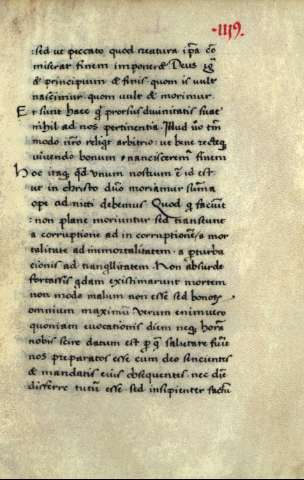 ·1119·
:sed ut peccato quod creatura ipa co
miserat finem imponeret Deus igr
et principium et finis quom is vult
nascimur quom vult et morimur.
Et sunt haec qde prorsus divinitatis suae
nihil ad nos pertinentia. Illud vo tm
modo nro reliqt arbitrio: ut bene recteqz
vivendo bonum nancisceremur finem
Hoc itaqz qd unum nostrum e id est
ut in christo dno moriamur suma
ope ad niti debemus Quod q faciunt
: non plane moriuntur sed transeunt
a corruptione ad in corruptione a mor
talitate ad immortalitatem a pturba
cionis ad tranqllitatem. Non absurde
fortassis qdam existimarunt mortem
non modo malum non esse sed bonorum
omnium maximum Verum enimvero
quoniam evocationis diem neqz horam
nobis scire datum est p q salutare fuerit
nos preparatos esse cum deo sencientis
et mandatis eius obsequentis nec diu
differre tutum esse sed insipienter factu